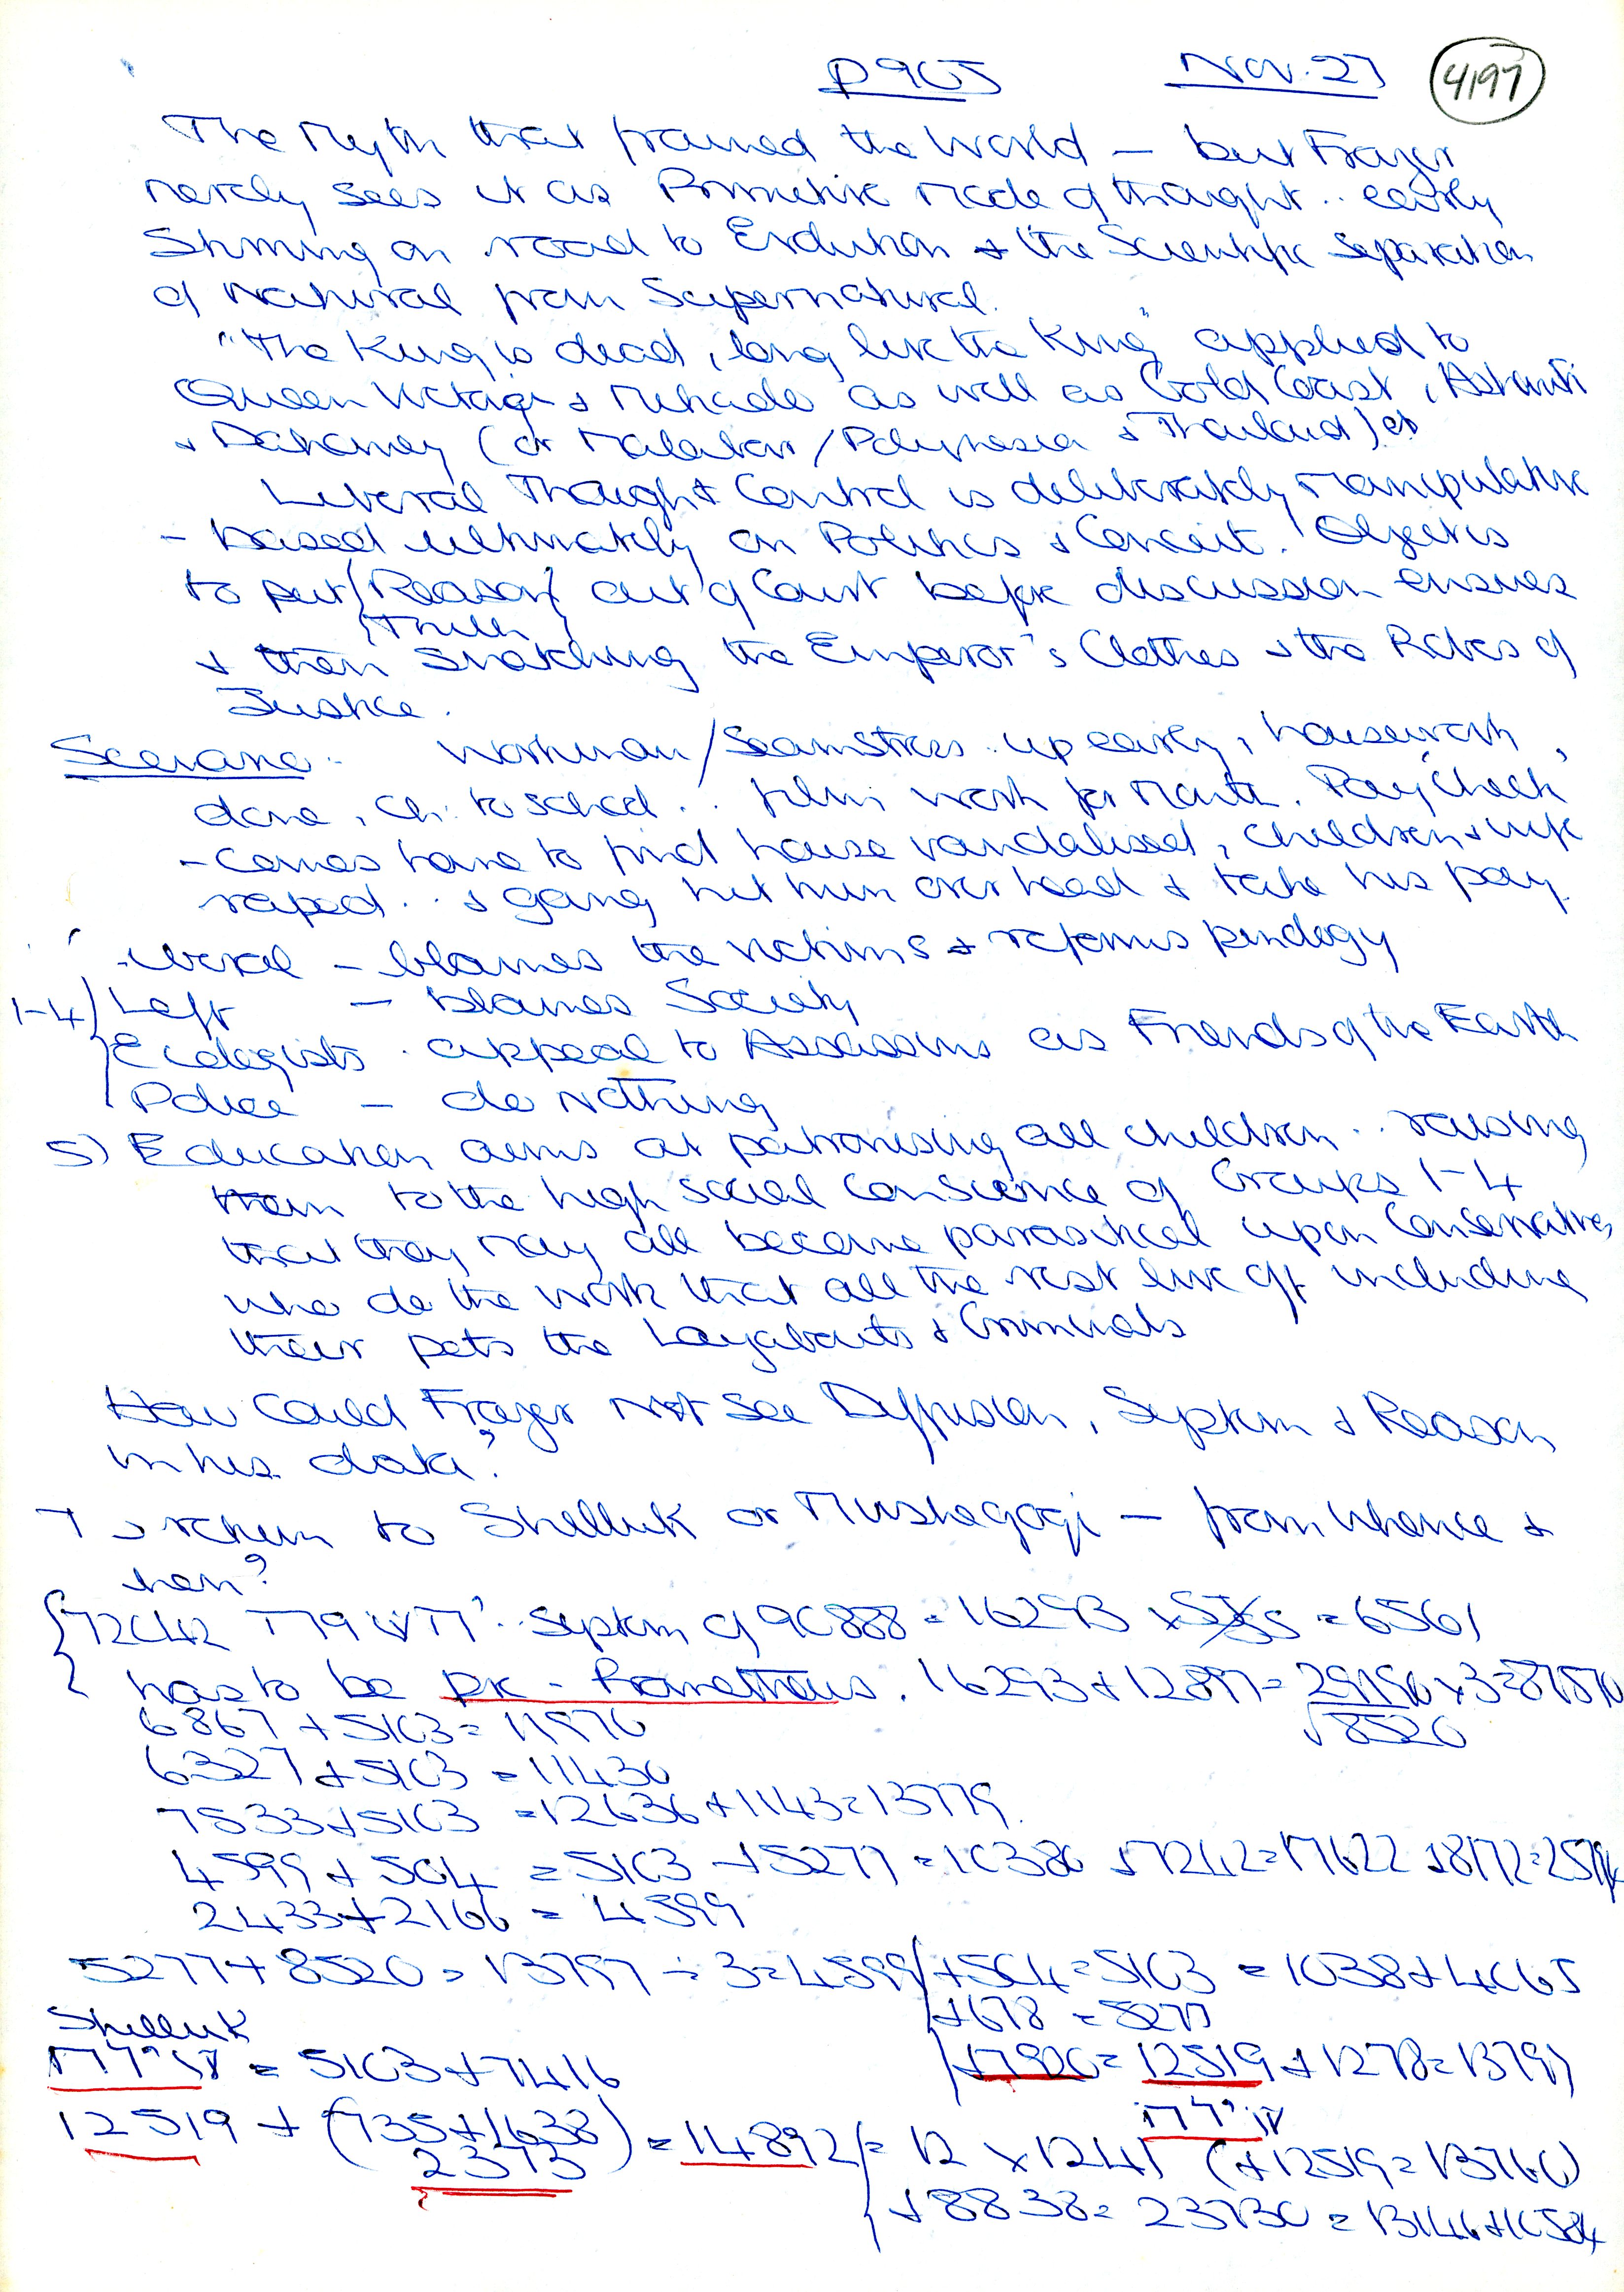 P905 Nov. 27 4197
The Myth that framed the World – but Frazer
merely sees it as Primitive mode of thought .. early
Stirring on road to Evolution + the Scientific Separation
of Natural from Supernatural.
"The King is dead, long live the King" applied to
Queen Victoria & Mikado as well as Gold Coast, Ashanti
+ Dahomey (or Malabar / Polynesia + Thailand) etc
Liberal Thought Control is deliberately manipulative
- based ultimately on Politics & Conceit. Objects
to put {Reason} out of Court before discussion ensues
{Truth}
+ then snatching the Emperor's Clothes + the Robes of
Justice.
Scenario. Workman / Seamstress .. up early, housework
done, ch. to school .. work for Month. Pay Check
- Comes home to find house vandalised, children + wife
raped .. & gang hit him over head + take his pay.
Liberal – blames the victims + reforms
1-4) Left – blames Society
Ecologists . appeal to Assassins as Friends of the Earth
Police – do Nothing
5) Education aims at patronising all children .. raising
them to the high social conscience of Groups 1-4
that they may all become parasitical upon Conservatives
who do the work that all the rest live off including
their pets the Layabouts & Criminals
How Could Frazer Not See Diffusion, System & Reason
in his data?
To return to Shilluk or – from whence +
when?
System of 90888 = 16293 = 6561
has to be pre - Prometheus. 16293 + 12897 = 29190 x 3 = 87570
6867 + 5103 = 11970 √8520
6327 + 5103 = 11430
7533 + 5103 = 12636 + 1143 = 13779
4599 + 504 = 5103 + 5277 = 10380 + 7242 = 17622 + 8172 = 25794
2433 + 2166 = 4599
5277 + 8520 = 13797 ÷ 3 = 4599 +504 = 5103 = 1038 + 4065
+678 = 5277
Shilluk
= 5103 + 7416 +7920 = 12519 + 1278 = 13797
12519 + (735 + 1638) = 14892 = 12 x 1241 (+12519 = 13760)
2373
+8838 = 23730 = 13146 + 10584